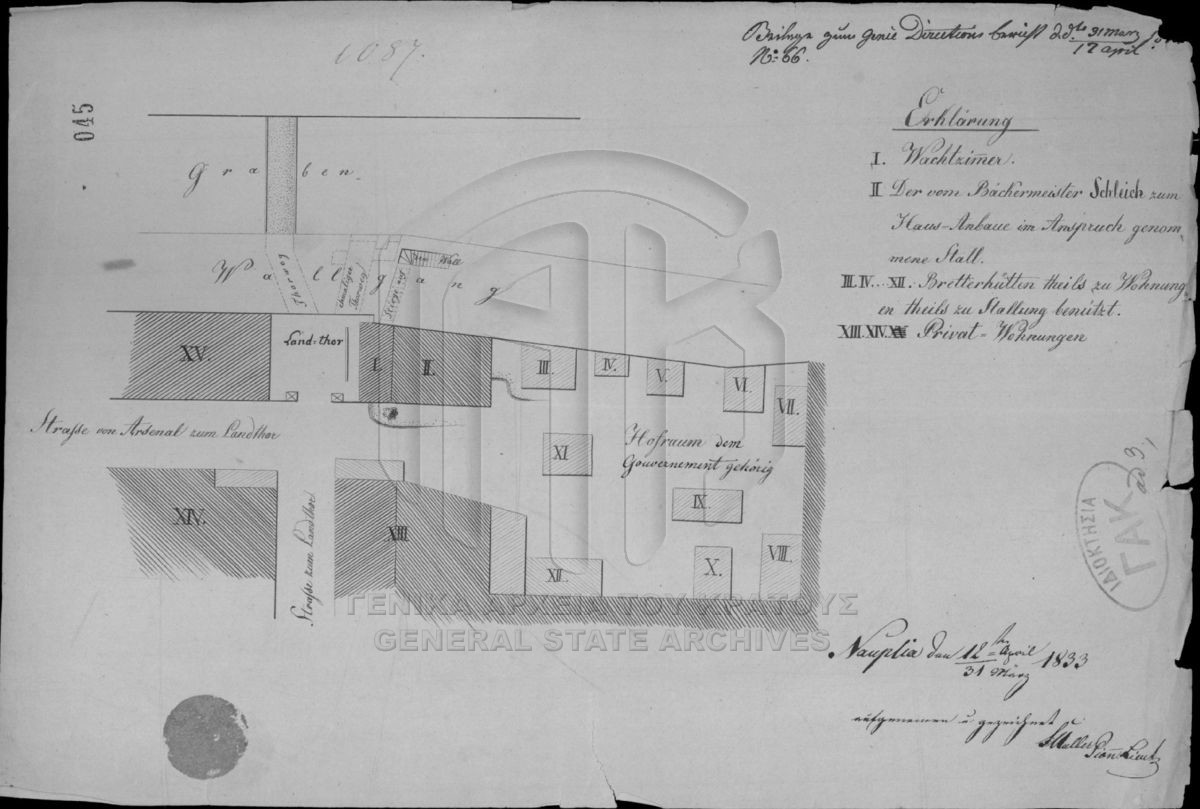 1087.
045
Beilage zum Genie Directions bericht d. dto 31 März
12 April
No. 66.
Erklärung
I. Wachtzim̄er.
II Der vom Bäckermeister Schleich zum
Haus-Anbaue im Anspruch genom-
mene Stall.
III. IV... XII. Bretterhütten theils zu Wohnung-
en theils zu Stallung benützt.
XIII. XIV. XV Privat-Wohnungen
Graben
Wallgang
Thorweg
ehmaliger
Thorweg
Stiege auf
den Wall
XV.
Land-thor
I.
II.
III.
IV.
V.
VI.
VII.
Straſse von Arsenal zum Landthor
XI
Hofraum dem
Gouvernement gehörig
IX.
XIV.
XIII
Straſse zum Landthor
XII.
X.
VIII.
ΙΔΙΟΚΤΗΣΙΑ
ΓΑΚ
ad 3,
ΓΕΝΙΚΑ ΑΡΧΕΙΑ ΤΟΥ ΚΡΑΤΟΥΣ
GENERAL STATE ARCHIVES
Nauplia den 12 April
31 März 1833
aufgenomen u gezeichnet
Lieut